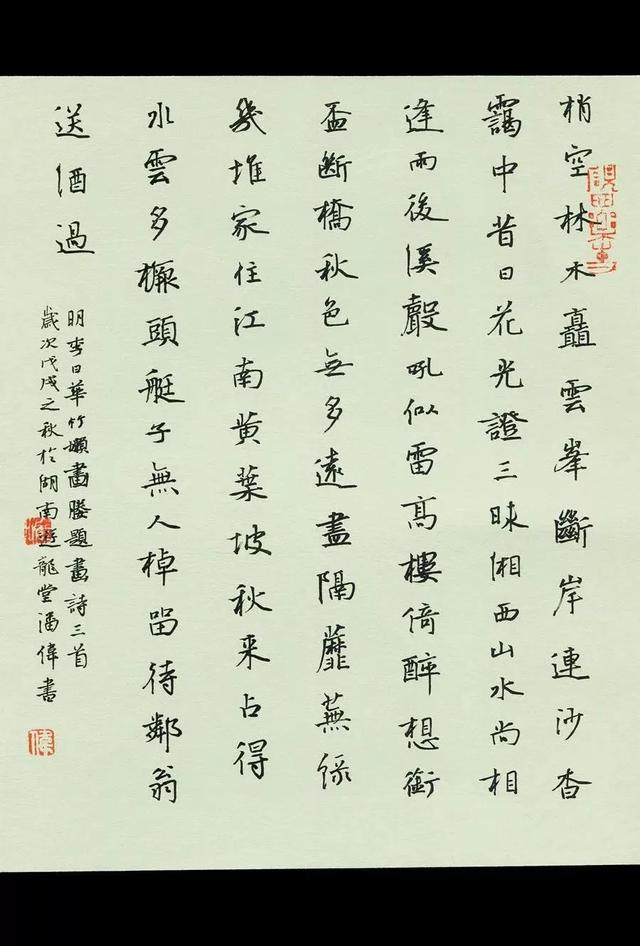 梢空林木矗雲峯斷岸連沙杳
靄中昔日花光證三昧湘西山水尚相
逢雨後溪聲吼似雷高樓倚醉想銜
盃斷橋秋色無多遠盡隔蘼蕪綠
幾堆家住江南黃葉坡秋來占得
水雲多橛頭艇子無人棹留待鄰翁
送酒過
明李日華竹嬾畫媵題畫詩三首
歲次戊戌之秋於湖南遊龍堂潘偉書
偉